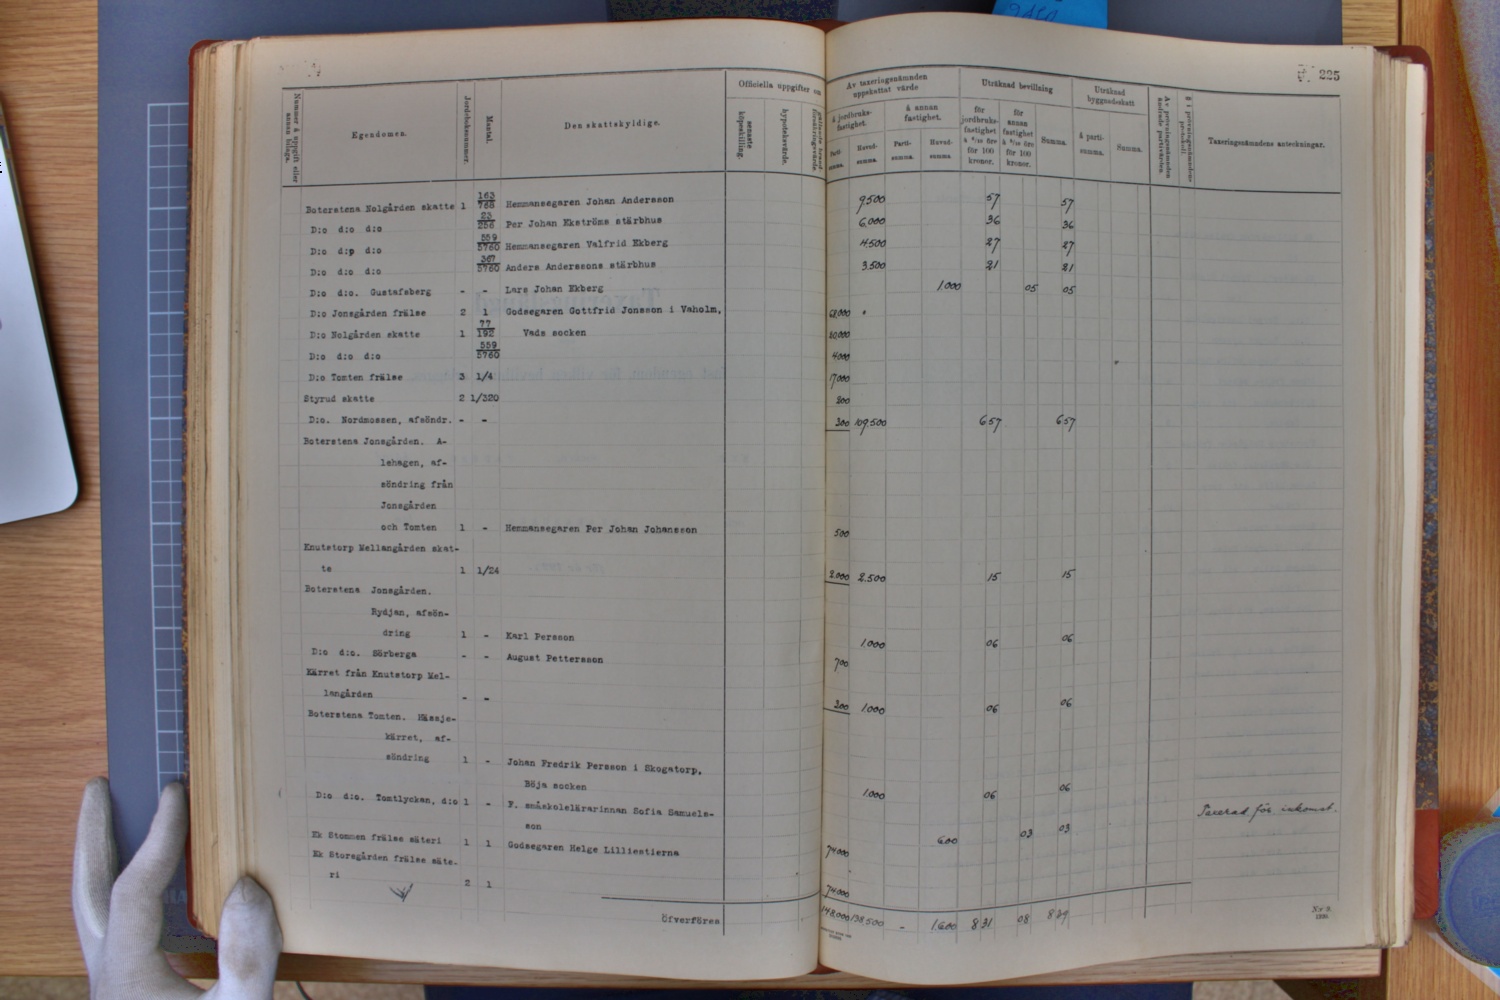 225
Nummer å uppgift eller annan bilaga.
Egendomen.
Jordeboksnummer.
Mantal.
Den skattskyldige.
Officiella uppgifter om
senaste köpeskilling.
hypoteksvärde.
Av taxeringsnämnden uppskattat värde
å jordbruksfastighet.
å annan fastighet.
Parti-summa.
Huvud-summa.
Parti-summa.
Huvud-summa
Uträknad bevillning
för jordbruksfastighet à 6/10 öre för 100 kronor.
för annan fastighet à 5/10 öre för 100 kronor.
Summa.
Uträknad byggnadsskatt
å parti-summa.
Summa.
Taxeringsnämndens anteckningar.
Boterstena Nolgården skatte 1 163/768 Hemmansegaren Johan Andersson 9.500 57 57
D:o d:o d:o 23/256 Per Johan Ekströms stärbhus 6.000 36 36
D:o d:o d:o 559/5760 Hemmansegaren Valfrid Ekberg 4.500 27 27
D:o d:o d:o 367/5760 Anders Anderssons stärbhus 3.500 21 21
D:o d:o. Gustafsberg - - Lars Johan Ekberg 1.000 05 05
D:o Jonsgården frälse 2 1 Godsegaren Gottfrid Jonsson i Vaholm,
D:o Nolgården skatte 1 77/192 Vads socken
D:o d:o d:o 559/5760 4000
D:o Tomten frälse 3 1/4 17000
Styrud skatte 2 1/320
D:o. Nordmossen, afsöndr. - - 300 109.500 657 657
Boterstena Jonsgården. A-
lehagen, af-
söndring från
Jonsgården
och Tomten 1 - Hemmansegaren Per Johan Johansson 500
Knutstorp Mellangården skat-
te 1 1/24 2.000 2.500 15 15
Boterstena Jonsgården.
Rydjan, afsön-
dring 1 - Karl Persson 1.000 06 06
D:o d:o. Sörberga - - August Pettersson 700
Kärret från Knutstorp Mel-
langården - - 300 1.000 06 06
Boterstena Tomten. Hässje-
kärret, af-
söndring 1 - Johan Fredrik Persson i Skogatorp,
Böja socken 1.000 06 06
D:o d:o. Tomtlyckan, d:o 1 - F. småskolelärarinnan Sofia Samuels- Taxerad för inkomst.
son 600 03 03
Ek Stommen frälse säteri 1 1 Godsegaren Helge Lilliestierna 74000
Ek Storegården frälse säte-
ri 2 1 74000
Öfverföres 148.000 138.500 - 1.600 831 08 839
N:r 9.